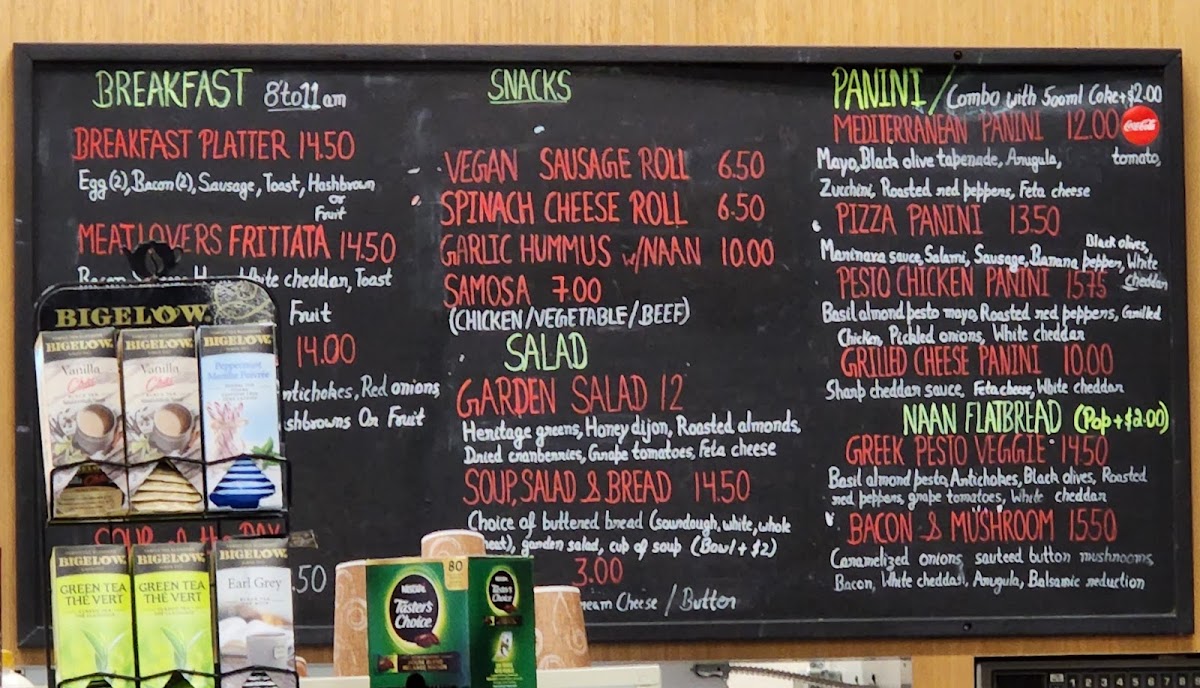 BREAKFAST 8 to 11am
BREAKFAST PLATTER 14.50
Egg (2), Bacon (2), Sausage, Toast, Hashbrown
or
Fruit
MEATLOVERS FRITTATA 14.50
White cheddar, Toast
Fruit
14.00
Artichokes, Red onions,
Hashbrowns Or Fruit
SOUP of the DAY
.50
SNACKS
VEGAN SAUSAGE ROLL 6.50
SPINACH CHEESE ROLL 6.50
GARLIC HUMMUS w/NAAN 10.00
SAMOSA 7.00
(CHICKEN/VEGETABLE/BEEF)
SALAD
GARDEN SALAD 12
Heritage greens, Honey dijon, Roasted almonds,
Dried cranberries, Grape tomatoes, Feta cheese
SOUP, SALAD & BREAD 14.50
Choice of buttered bread (sourdough, white, whole
wheat), garden salad, cup of soup (Bowl + $2)
3.00
Cream Cheese / Butter
PANINI / Combo with 500ml Coke + $2.00
MEDITERRANEAN PANINI 12.00
Coca-Cola
Mayo, Black olive tapenade, Arugula, tomato,
Zucchini, Roasted red peppers, Feta cheese
PIZZA PANINI 13.50
Marinara sauce, Salami, Sausage, Banana pepper, Black olives, White cheddar
PESTO CHICKEN PANINI 15.75
Basil almond pesto mayo, Roasted red peppers, Grilled
Chicken, Pickled onions, White cheddar
GRILLED CHEESE PANINI 10.00
Sharp cheddar sauce, Feta cheese, White cheddar
NAAN FLATBREAD (Pop + $2.00)
GREEK PESTO VEGGIE 14.50
Basil almond pesto, Artichokes, Black olives, Roasted
red peppers, grape tomatoes, White cheddar
BACON & MUSHROOM 15.50
Caramelized onions, sauteed button mushrooms,
Bacon, White cheddar, Arugula, Balsamic reduction
BIGELOW
BIGELOW
Vanilla
Chai
BIGELOW
Vanilla
Chai
BIGELOW
Peppermint
Menthe Poivrée
BIGELOW
GREEN TEA
THÉ VERT
BIGELOW
GREEN TEA
THÉ VERT
BIGELOW
Earl Grey
80
NESCAFÉ
Taster's
Choice
Taster's
Choice